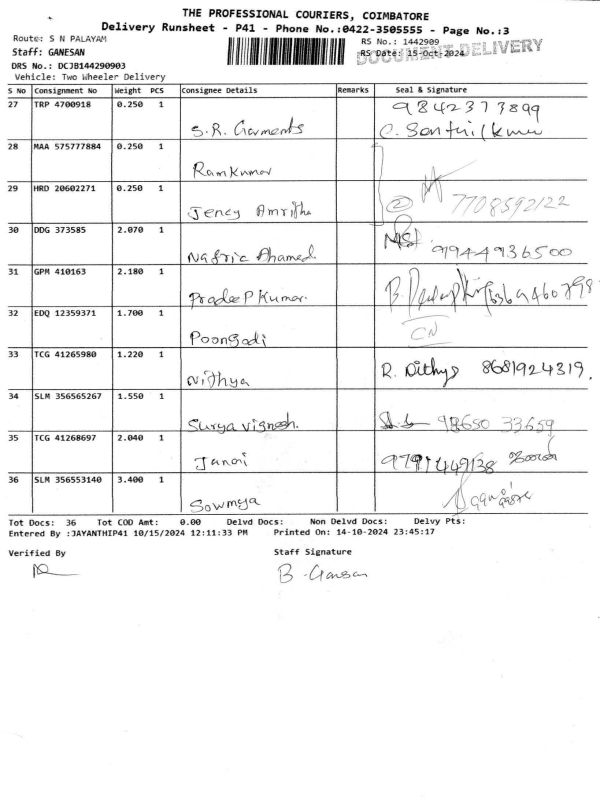 THE PROFESSIONAL COURIERS, COIMBATORE
Delivery Runsheet - P41 - Phone No.:0422-3505555 - Page No.:3
Route: S N PALAYAM
RS No.: 1442909
DOCUMENT DELIVERY
Staff: GANESAN
RS Date: 15-Oct-2024
DRS No.: DCJB144290903
Vehicle: Two Wheeler Delivery
S No Consignment No Weight PCS Consignee Details Remarks Seal & Signature
27 TRP 4700918 0.250 1 S.R. Garments 9842373899
C. Senthilkumar
28 MAA 575777884 0.250 1 Ramkumar
29 HRD 20602271 0.250 1 Jency Amritha 2 7708592122
30 DDG 373585 2.070 1 Nafric Ahamed 9944936500
31 GPM 410163 2.180 1 Pradeep Kumar B.
32 EDQ 12359371 1.700 1 Poongodi CN
33 TCG 41265980 1.220 1 Nithya R. Nithya 8681924319.
34 SLM 356565267 1.550 1 Surya vignesh. 98650 33659
35 TCG 41268697 2.040 1 Janani 9791449138
36 SLM 356553140 3.400 1 Sowmya
Tot Docs: 36 Tot COD Amt: 0.00 Delvd Docs: Non Delvd Docs: Delvy Pts:
Entered By :JAYANTHIP41 10/15/2024 12:11:33 PM Printed On: 14-10-2024 23:45:17
Verified By Staff Signature
B. Ganesan